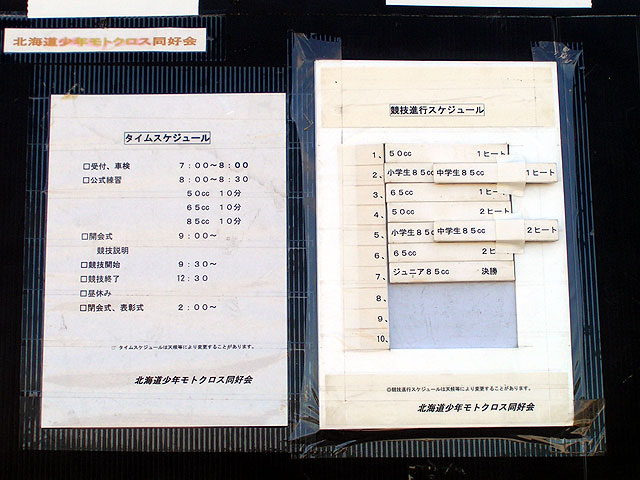 北海道少年モトクロス同好会
タイムスケジュール
□受付、車検 7:00〜8:00
□公式練習 8:00〜8:30
50cc 10分
65cc 10分
85cc 10分
□開会式 9:00〜
競技説明
□競技開始 9:30〜
□競技終了 12:30
□昼休み
□閉会式、表彰式 2:00〜
☞ タイムスケジュールは天候等により変更することがあります。
北海道少年モトクロス同好会
競技進行スケジュール
1、 50cc 1ヒート
2、 小学生85cc 中学生85cc 1ヒート
3、 65cc 1ヒート
4、 50cc 2ヒート
5、 小学生85cc 中学生85cc 2ヒート
6、 65cc 2ヒート
7、 ジュニア85cc 決勝
8、
9、
10、
◎競技進行スケジュールは天候等により変更することがあります。
北海道少年モトクロス同好会